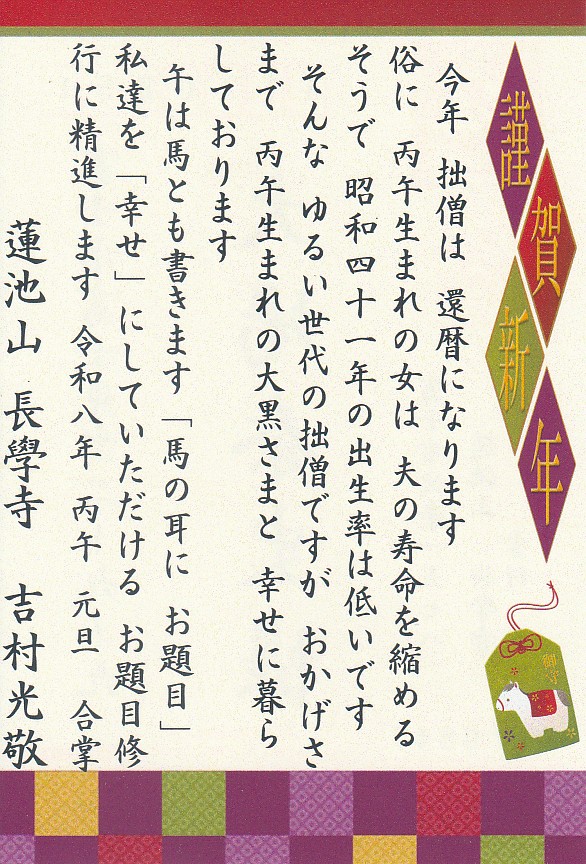 謹賀新年
今年 拙僧は 還暦になります
俗に 丙午生まれの女は 夫の寿命を縮める
そうで 昭和四十一年の出生率は低いです
そんな ゆるい世代の拙僧ですが おかげさ
まで 丙午生まれの大黒さまと 幸せに暮ら
しております
午は馬とも書きます「馬の耳に お題目」
私達を「幸せ」にしていただける お題目修
行に精進します 令和八年 丙午 元旦 合掌
蓮池山 長學寺 吉村光敬
御守